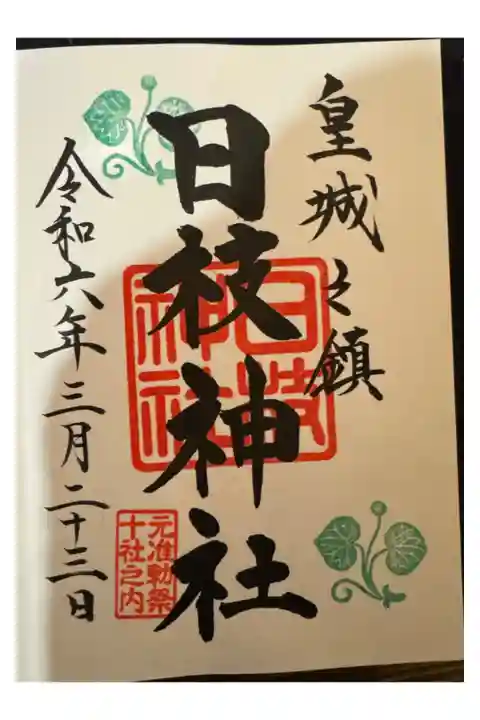 皇城之鎮
日枝神社
日枝神社
元准勅祭
十社之内
令和六年三月二十三日